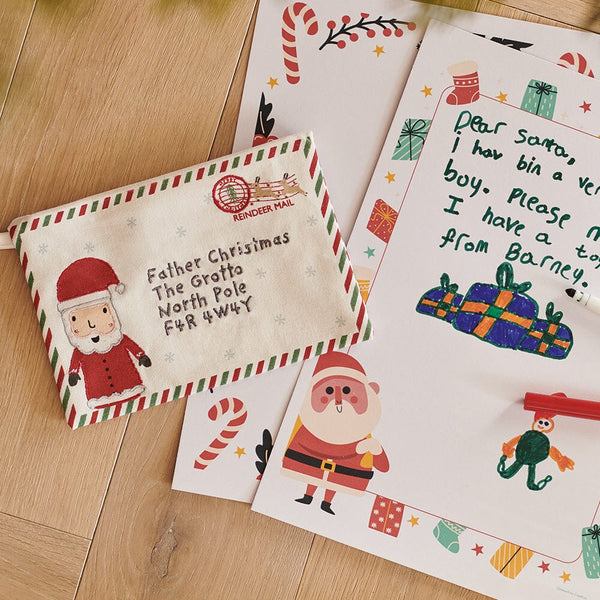 REINDEER MAIL
Father Christmas
The Grotto
North Pole
F4R 4W4Y
Dear Santa,
i hav bin a ver
boy. Please
I have a to
from Barney.